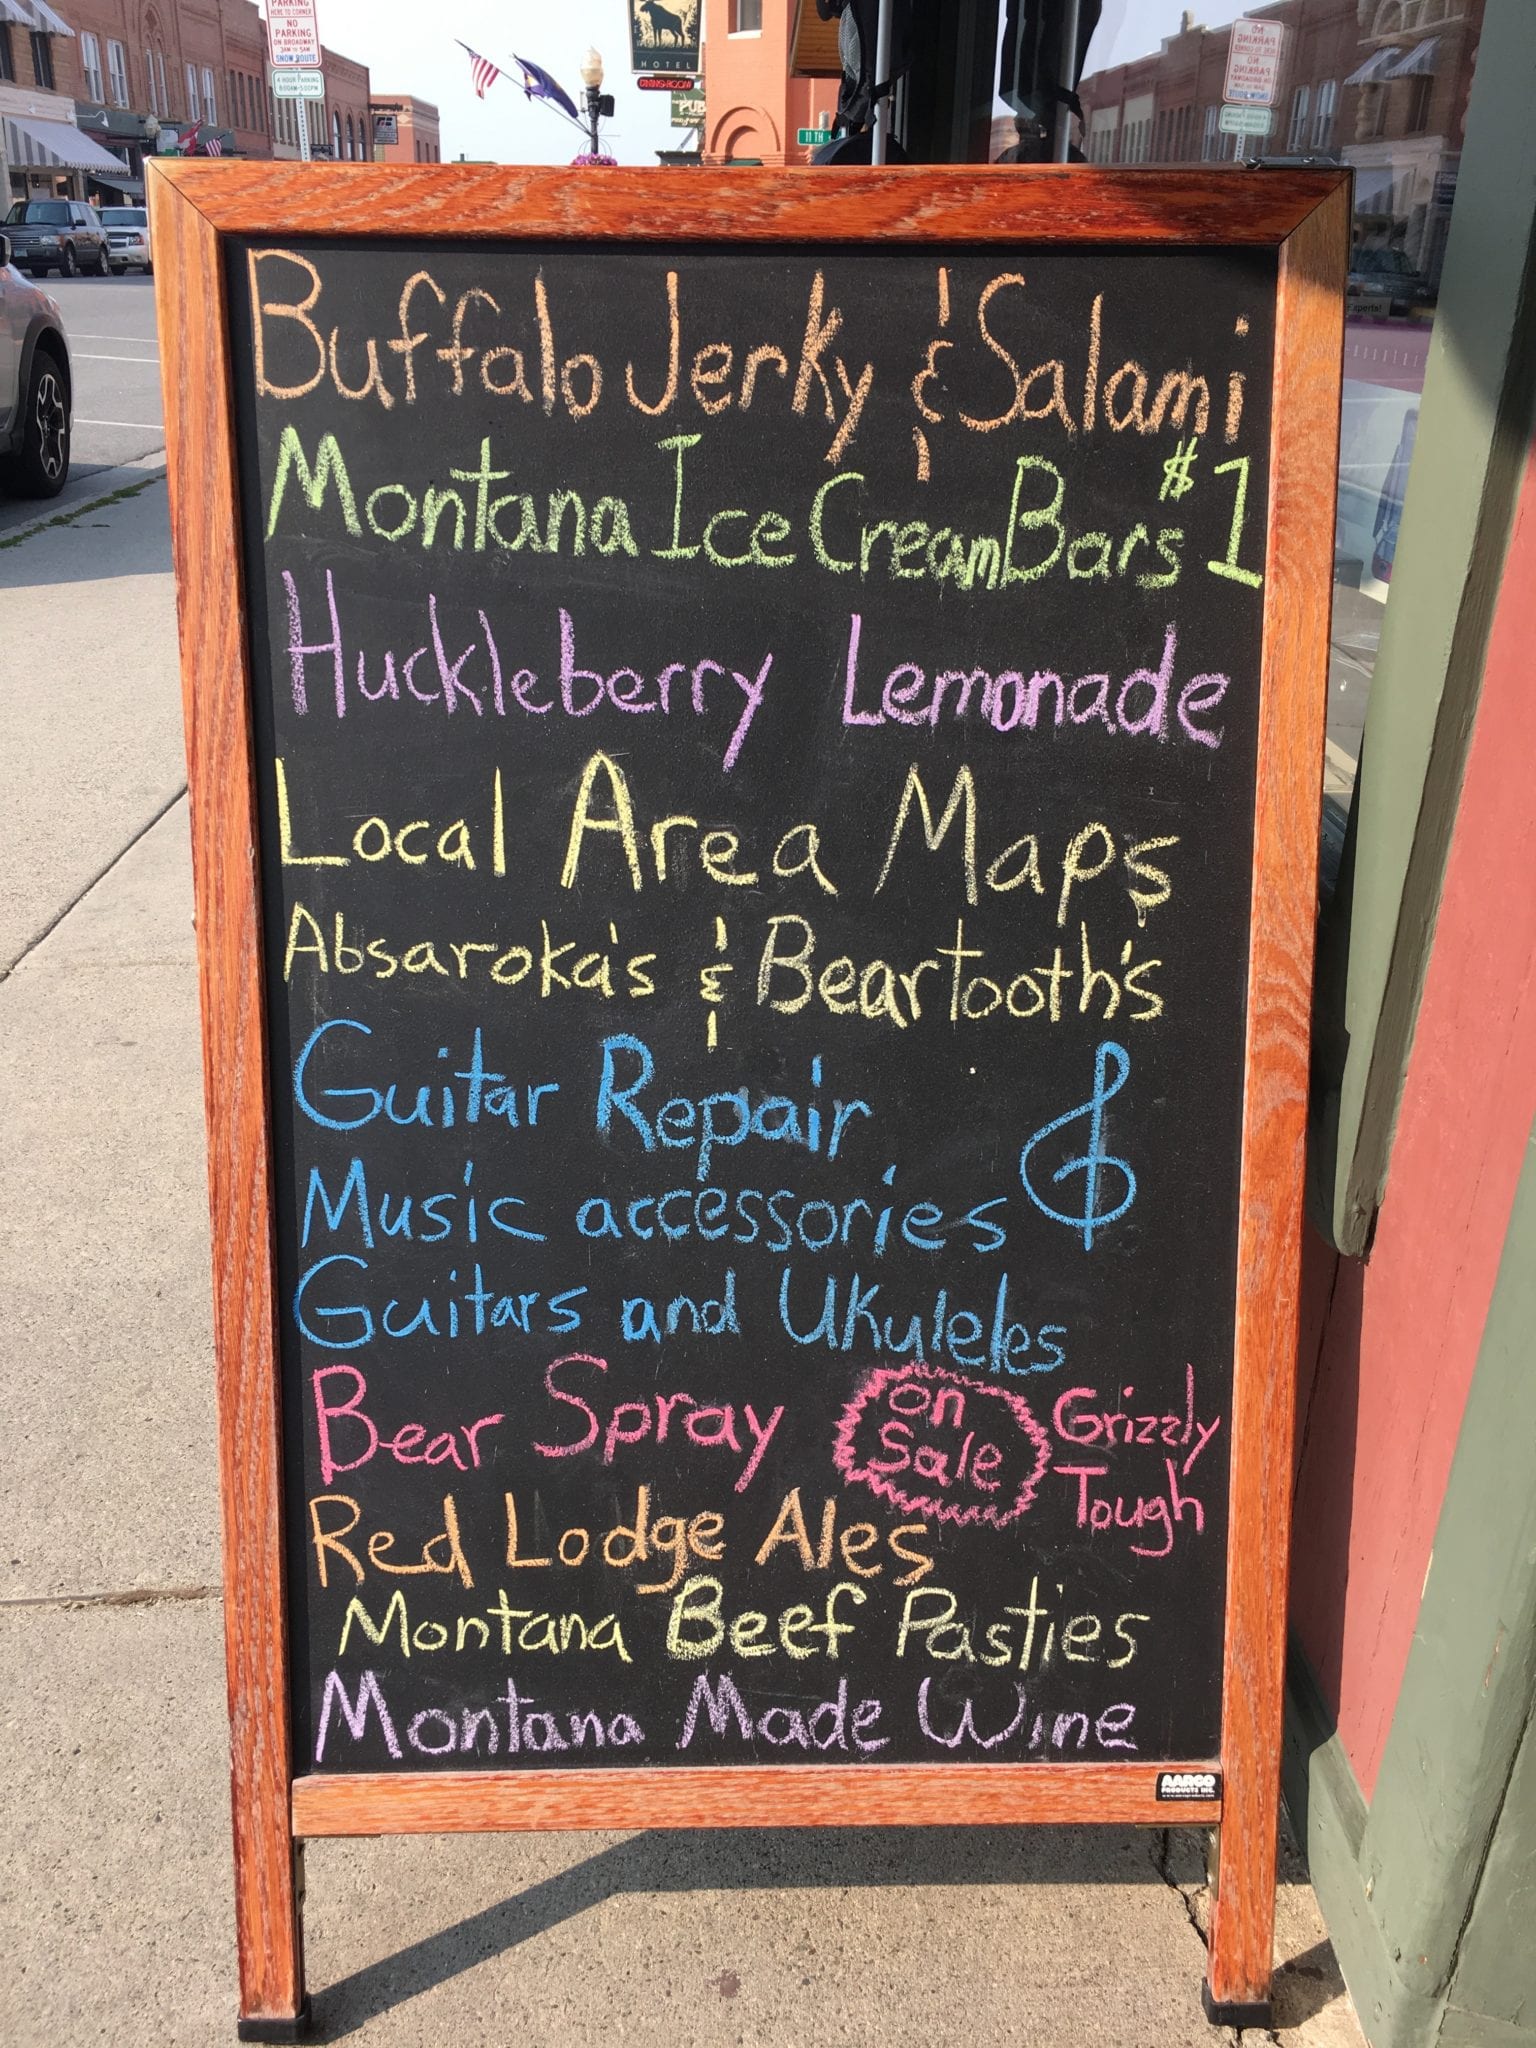 PARKING
HERE TO CORNER
NO
PARKING
ON BROADWAY
3AM TO 5AM
SNOW ROUTE
4 HOUR PARKING
8:00AM-5:00PM
HOTEL
DINING-ROOM
PUB
11 TH
Buffalo Jerky & Salami
Montana Ice Cream Bars $1
Huckleberry Lemonade
Local Area Maps
Absaroka's & Beartooth's
Guitar Repair
Music accessories
Guitars and Ukuleles
Bear Spray on Sale Grizzly Tough
Red Lodge Ales
Montana Beef Pasties
Montana Made Wine
AARCO
PRODUCTS INC.